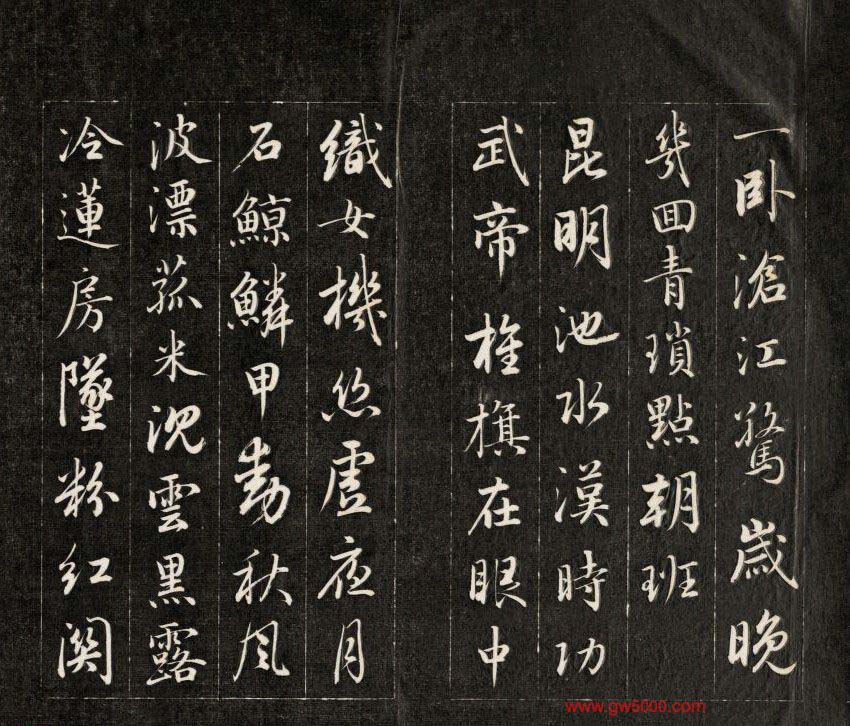 一卧滄江驚歲晚
幾回青瑣點朝班
昆明池水漢時功
武帝旌旗在眼中
織女機絲虛夜月
石鯨鱗甲動秋風
波漂菰米沈雲黑露
冷蓮房墜粉紅關
www.gw5000.com